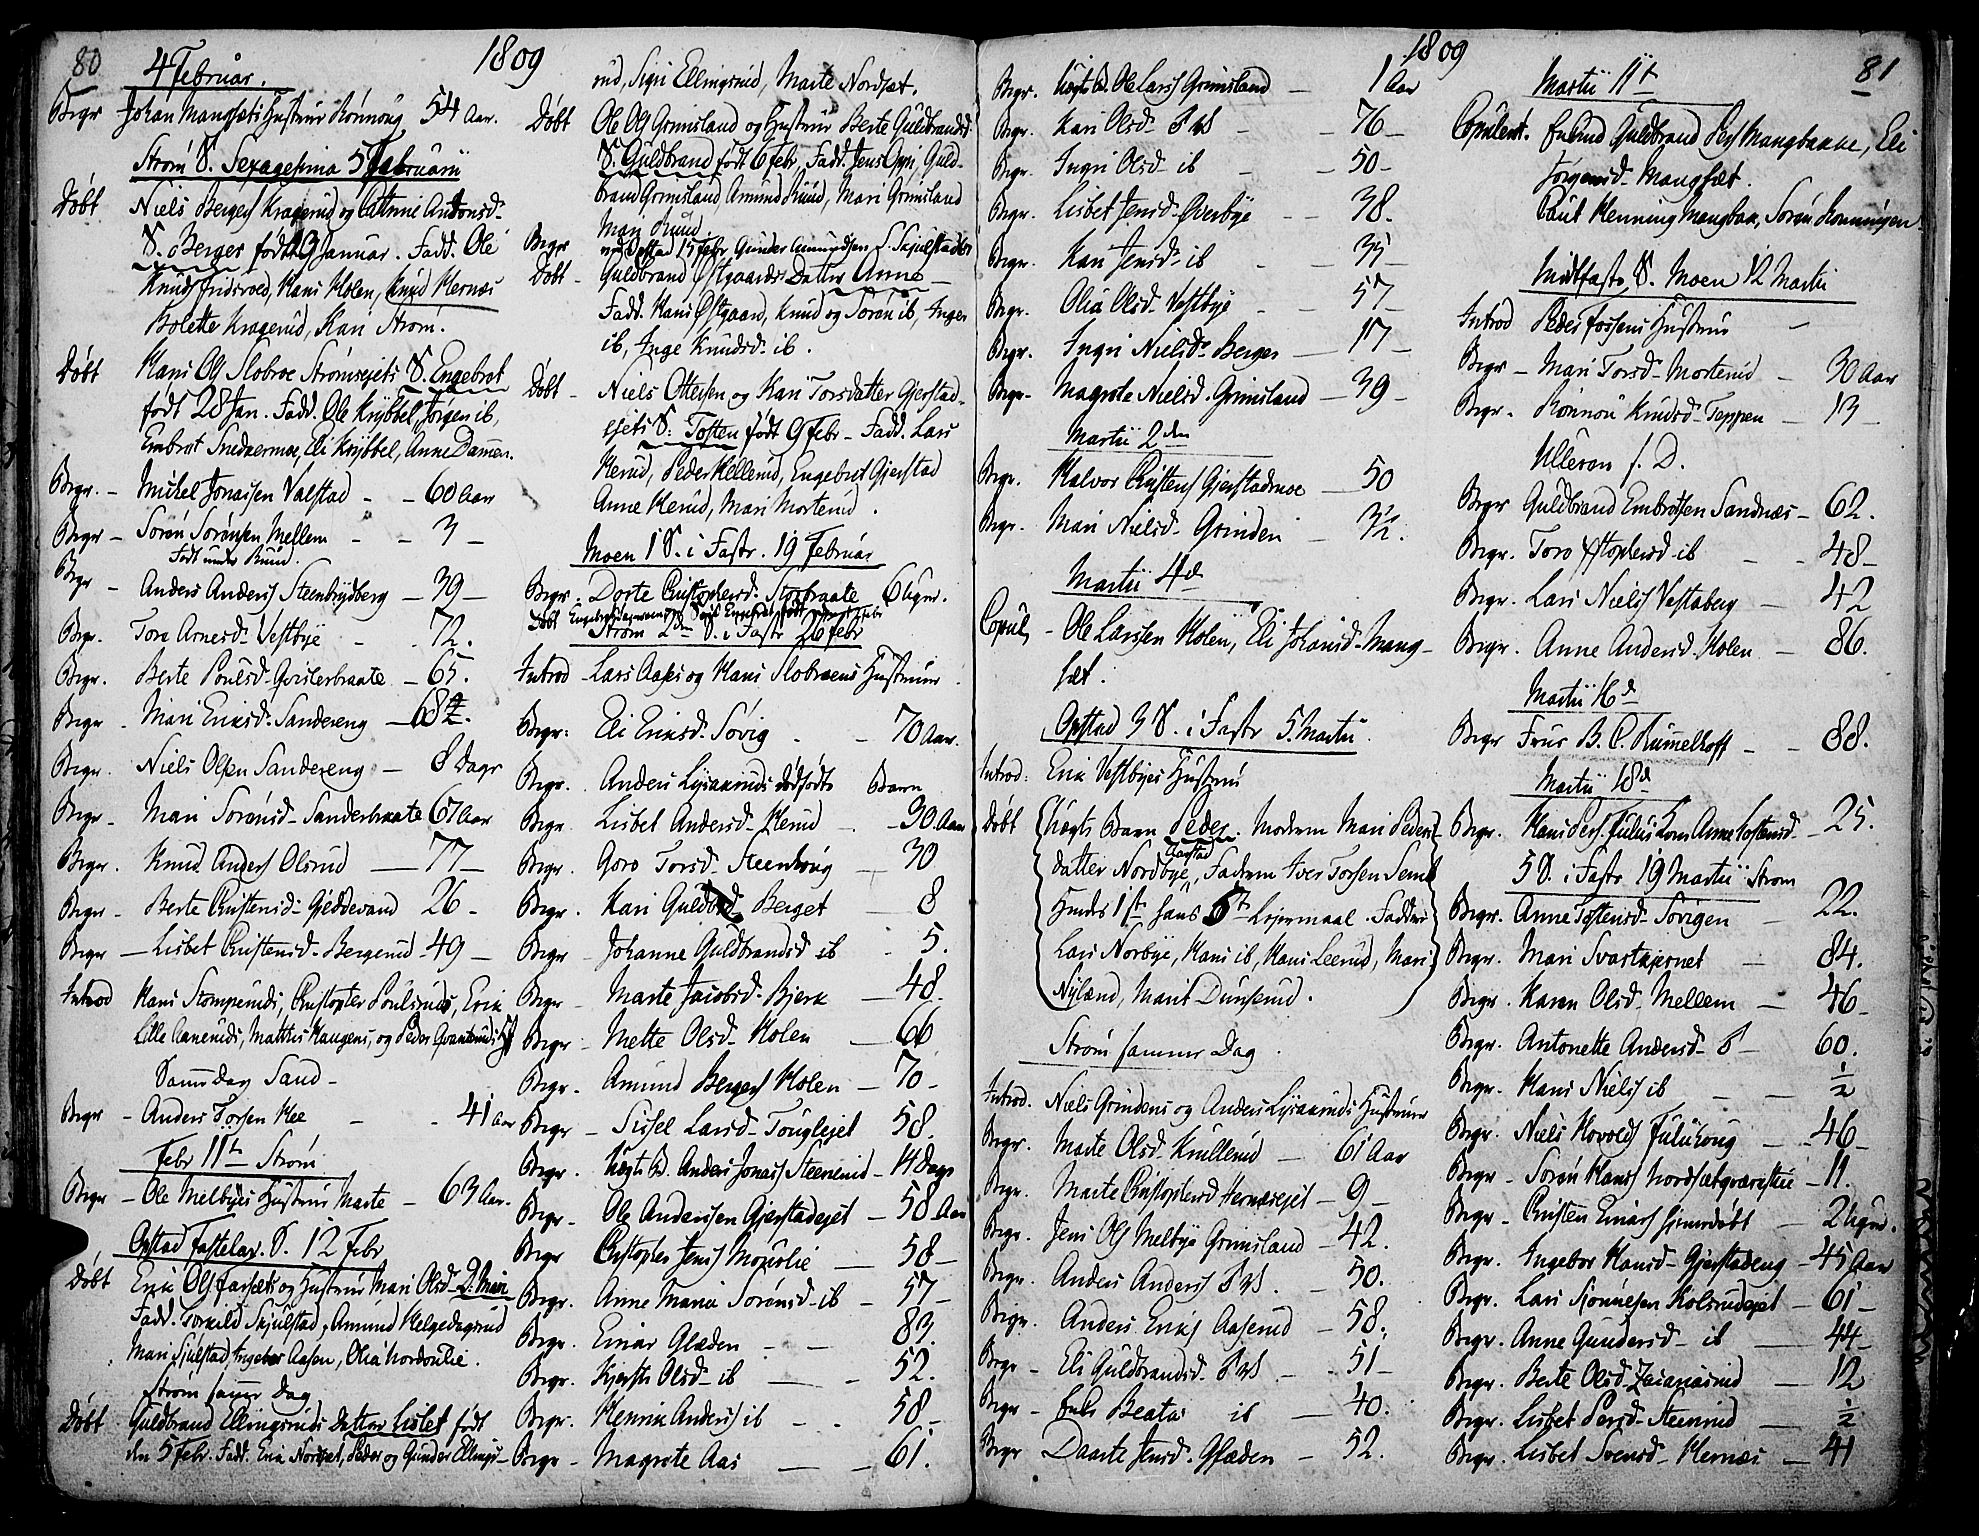 80
1809
4 Februar.
Begr Johan Mangsæts Hustrue Rønnoug 54 Aar.
Strøm S. Sexagesima 5 Februarii
Døbt Niels Bergers Kragerud og Anne Antonsd
S. Berger født 9 Januar. Fadd. Ole
Knuds, Hans Holen, Knud Hernæs
Bolette Kragerud, Kari Strøm.
Døbt Hans Ols Slobroe Strømsejets S. Engebret
født 28 Jan. Fadd. Ole Krybbel, Jørgen ib,
Embret Snekkermoe, Eli Krybbel, Anne Dammen.
Begr. - Mikkel Jonassen Valstad - - 60 Aar
Begr - Søren Sørensen Mellem - - 3 -
Født under Rund.
Begr - Anders Anders Steenbrydberg - 39 -
Begr. Tore Arnesd Vestbye - 72.
Begr. Berte Poulsd Gvisterbraate - 65.
Begr - Mari Eriksd. Sandereng - 68
Begr. Niels Olsen Sandereng - 8 Dage
Begr - Mari Sørensd - Sanderbraate 67 Aar
Begr. Knud Anders Olsrud - 77 -
Begr - Berte Christensd Gjeddevand 26 -
Begr - Lisbet Christensd - Bergerud - 49 -
Introd Hans Stomperuds, Christopher Poulsruds, Erik
Lille Aaneruds, Matthis Haugens, og Peder
Samme Dag Sand -
Begr - Anders Torsen Hee - - 41 Aar
Febr 11te Strøm
Begr - Ole Melbyes Hustrue Marte - 63 Aar.
Opstad Fastelav. S. 12 Febr
Døbt Erik Ols og Hustrue Mari Olsd D. Mari
Fadd. Torkild Skjulstad, Amund Helgedagsrud
Mari Sjulstad, Ingebor Aasen, Olia Nordvalie.
Strøm samme Dag
Døbt Guldbrand Ellingsruds Datter Lisbet født
den 5 Febr. Fadd. Erik Nordsæt, Peder og Gunder Ellings-
rud, Sigri Ellingsrud, Marte Nordsæt.
Døbt Ole Ols Grimsland og Hustrue Berte Guldbrandsd
S. Guldbrand født 6 Febr, Fadd. Jens, Guld-
brand Grimsland, Amund Rund, Mari Grimsland
Mari Rund.
Begr ved Opstad 15 Febr Gunder Amundsen
Døbt - Guldbrand Østgaards Datter Anne
Fadd. Hans Østgaard, Knud og Søren ib, Inger
ib, Inge Knudsd ib.
Døbt - Niels Ottesen og Kari Torsdatter Gjerstad-
ejets S. Tosten født 9 Febr - Fadd. Lars
Herud, Peder Hellerud, Engebret Gjerstad
Anne Herud, Mari Morterud.
Moen 1 S. i Faste. 19 Februar
Begr. Dorte Christophersd. Storbraate 6 Uger.
Strøm 2den S. i Faste 26 Febr
Introd - Lars Aases og Hans Slobroens Hustruer
Begr. Eli Eriksd. Søvig - - 70 Aar.
Begr. Anders Lysaaeruds dødfødte Barn
Begr. Lisbet Andersd Herud - 30 Aar
Begr. Goro Torsd - Steenhoug - 30
Begr. Kari Guldbrd Berget - 8
Begr - Johanne Guldbrandsd ib - 5.
Begr - Marte Jacobsd - Bjerk - 48.
Begr - Mette Olsd - Holen - 66
Begr - Amund Bergers Holen - 70 -
Begr - Sissel Larsd - Touglejet 58.
Begr. Uægte B. Anders Jonass Steenerud - 14 Dage
Begr - Ole Andersen Gjerstadejet - 58 Aar
Begr - Christopher Jens - 58 -
Begr. Anne Maria Sørensd ib - 57 -
Begr. Einar Glæden - - 83.
Begr. Kjersti Olsd - ib - - 52.
Begr. Henrik Anders ib - - 58 -
Begr - Magrete Aas - - 61.
1809
81
Begr. Uægte B. Ole Lars Grimsland - 1 Aar
Begr. Kari Olsd - - 76 -
Begr. Ingri Olsd - ib - 50 -
Begr. Lisbet Jensd - Overbye - - 38.
Begr. Kari Jensd - ib - 35 -
Begr. Olia Olsd - Vestbye - 57 -
Begr. Ingri Nielsd - Berger - 17 -
Begr. Magrete Nielsd. Grimsland - 39 -
Martii 2den
Begr. Halvor Christens Gjerstadmoe - 50
Begr. Mari Nielsd - Grinden - 3½.
Martii 4de
Copul. - Ole Larssen Holen, Eli Johansd - Mang-
sæt.
Opstad 3 S. i Faste 5. Martii
Introd. Erik Vestbyes Hustrue
Døbt Uægte Barn Peder. Moderen Mari Peders
datter Nordbye Aarstad, Faderen Iver Torsen
Hendes 1ste hans Lejermaal. Faddere
Lars Norbye, Hans ib, Hans Leerud, Mari
Nyland, Marit Dunserud.
Strøm samme Dag.
Introd. Niels Grindens og Anders Lysaaeruds Hustruer
Begr. Marte Olsd. Krullerud - 61 Aar
Begr. Marte Christophersd Hernæsejet - 9 -
Begr. Jens Ols Melbye Grimsland - 42.
Begr. Anders Anders - 50.
Begr. Anders Eriks Aaserud - 58.
Begr - Eli Guldbrandsd - - 51 -
Begr - Beata ib - 40.
Begr Daarte Jensd. Glæden - 52.
Martii 11te
Copuleret. Guldbrand Peders Mangbakke, Eli
Jørgensd - Mangsæt.
Caut Henning Mangbak, Søren Henningsen.
Midfaste S. Moen 12 Martii
Introd Peder Fossens Hustrue -
Begr - Mari Torsd - Morterud - 30 Aar
Begr - Rønnou Knudsd - Teppen - 13 -
Ulleren s. D.
Begr Guldbrand Embretsen Sandnæs - 62.
Begr. Toro Christophersd ib - 48 -
Begr. Lars Niels Vestaberg - 42
Begr. Anne Andersd - Holen - 86.
Martii 16de
Begr Frue B. C. Rumelhoff - - 88.
Martii 18de
Begr. Hans Pers. Anne Tostensd - 25.
5 S. i Faste 19 Martii Strøm
Begr. Anne Tostensd - Søvigen - 22.
Begr. Mari Svartkjernet - 84.
Begr. Karen Olsd - Mellem - 46 -
Begr. Antonette Andersd - 60.
Begr. Hans Niels ib - - ½
Begr. Niels Hovolds Fuluhoug - 46 -
Begr. - Søren Hans - 11.
Begr - Christen Einars hjemedøbt - 2 Uger.
Begr. Ingebor Hansd - Gjerstadeng - 45 Aar
Begr. Lars Kolsrudejet - 61 -
Begr. Anne Gundersd - ib - 44 -
Begr. Berte Olsd Zakariasrud - 12
Begr. Lisbet Persd - Steenrud - ½
Begr. - Lisbet Svensd - Hernæs - 41